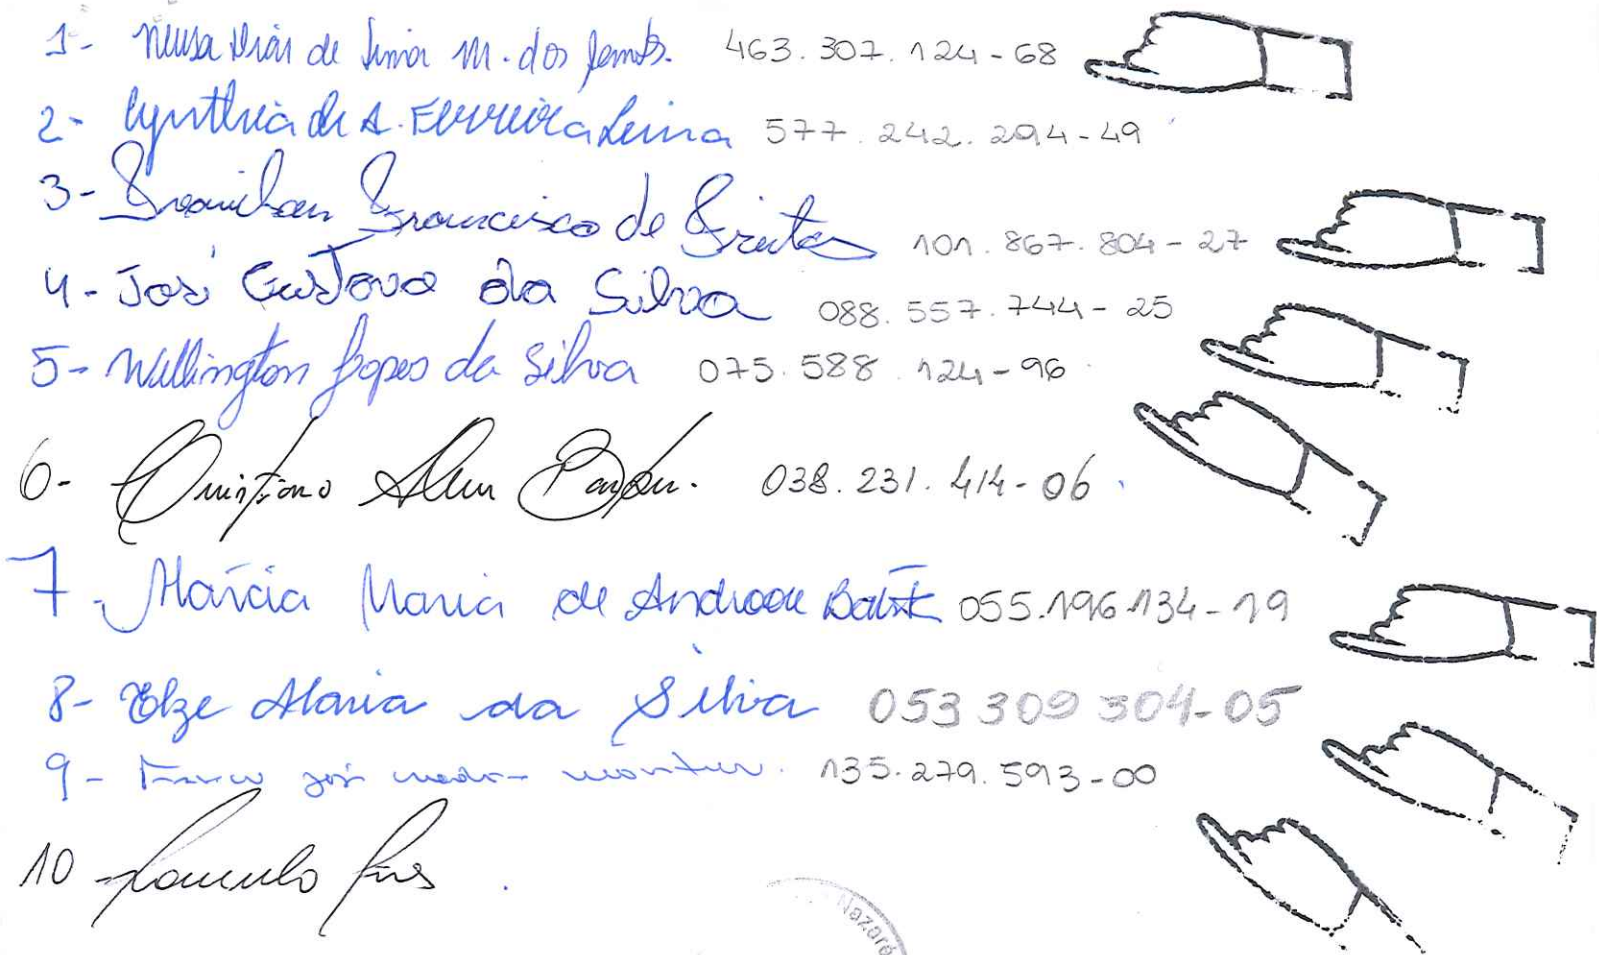 1- Neusa Dias de Lima M. dos Santos. 463.307.124-68
2- Cynthia de A. Ferreira Lima 577.242.294-49
3- Francisco de Freitas 101.867.804-27
4- José Gustavo da Silva 088.557.744-25
5- Wellington Lopes da Silva 075.588.124-96
6- 038.231.414-06
7- Márcia Maria de Andrade 055.196.134-19
8- Elze Maria da Silva 053 309 304-05
9- José 135.279.593-00
10
Nazaré